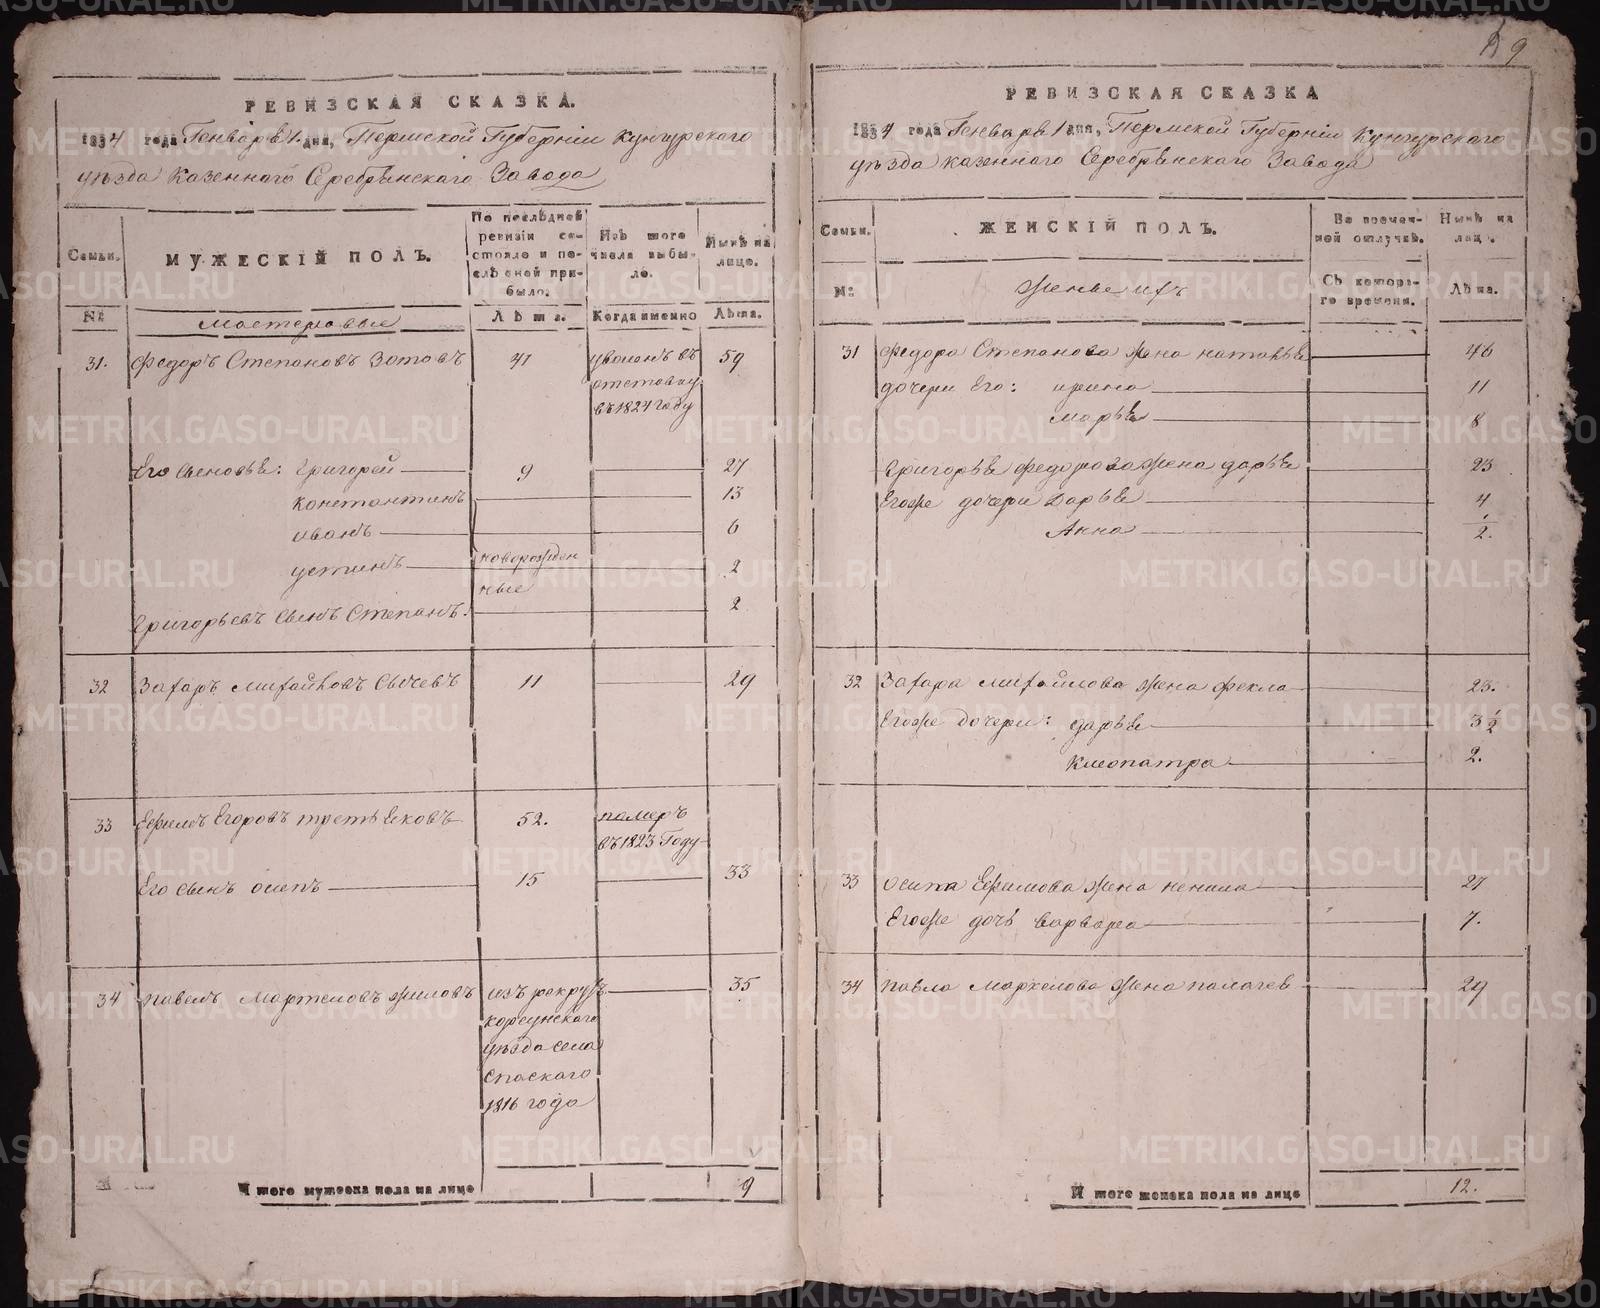 9
РЕВИЗСКАЯ СКАЗКА.
1834 года Генваря 1 дня, Пермской Губерніи Кунгурского
уѣзда казенного Серебрянского Завода
Семьи.
МУЖЕСКІЙ ПОЛЪ.
По послѣдней ревизіи состояло и послѣ оной прибыло.
Изъ того числа выбыло.
Нынѣ на лицо.
№
Мастеровые
Лѣта.
Когда именно
Лѣта.
31. Федоръ Степановъ Зотовъ 41 уволенъ въ 59
отставку
въ 1824 году
Его сыновья: Григорей 9 27
Константинъ 13
Иванъ 6
Устинъ новорожден 2
ные
Григорьевъ сынъ Степанъ. 2
32 Захаръ Михайловъ Сычевъ 11 29
33 Ефимъ Егоровъ Третьяковъ 52. померъ
въ 1823 Году
Его сынъ осипъ 15 33
34 Павелъ Мартеловъ Жиловъ изъ рекрутъ 35
корсунскаго
уѣзда села
Спаскаго
1816 года
Итого мужеска пола на лицо 9
РЕВИЗСКАЯ СКАЗКА
1834 года Генваря 1 дня, Пермской Губерніи Кунгурского
уѣзда казенного Серебрянского Завода
Семьи.
ЖЕНСКІЙ ПОЛЪ.
Во временной отлучкѣ.
Нынѣ на лицо.
№:
Жены ихъ
Съ которого времени.
Лѣта.
31 Федора Степанова жена наталья 46
дочери Его: ирина 11
марья 8
Григорья Федорова жена дарья 23
Егоже дочери дарья 4
Анна 1/2.
32 Захара михайлова жена Фекла 23.
Егоже дочери: дарья 3 1/2
Клеопатра 2.
33 осипа Ефимова жена ненила 27
Егоже дочь варвара 7.
34 павла мархелова жена 29
Итого женска пола на лицо 12.
METRIKI.GASO-URAL.RU